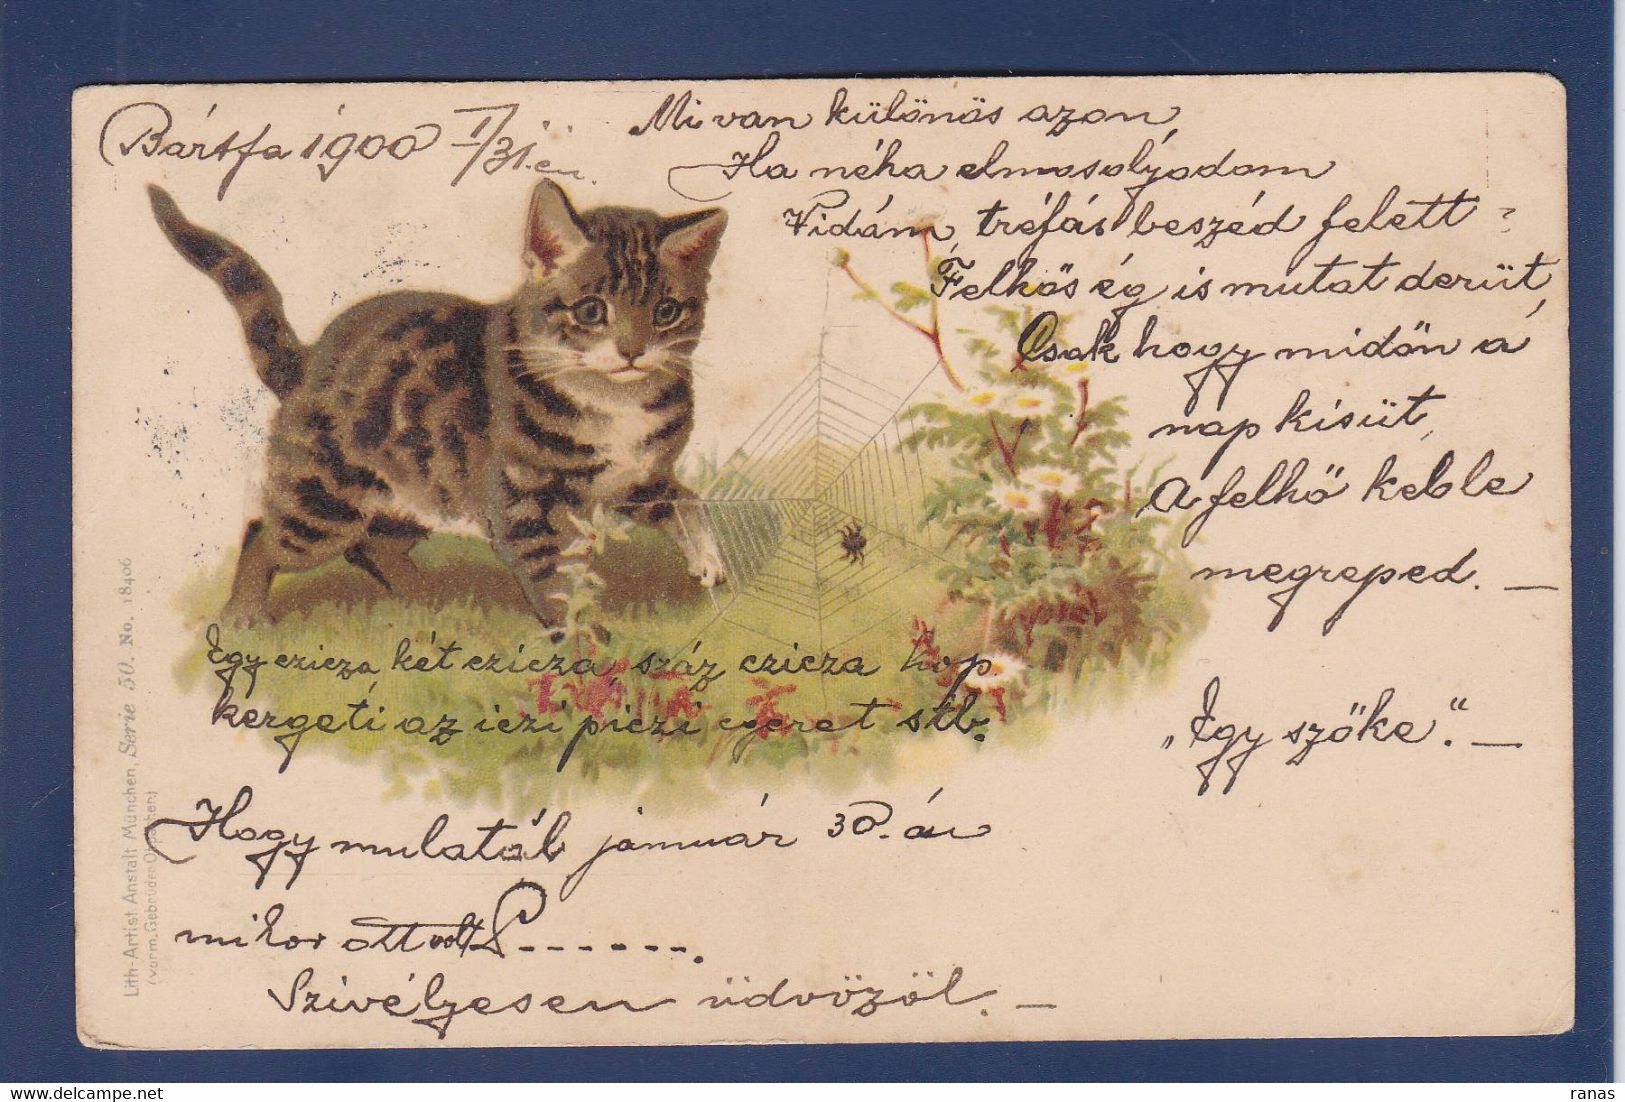 Bártfa 1900 I/31.én.
Mi van különös azon,
Ha néha elmosolyodom
Vidám, tréfás beszéd felett?
Felhős ég is mutat derüt,
Csak hogy midőn a
nap kisüt,
A felhő keble
megreped. —
„Egy szőke". —
Egy czicza, két czicza, száz czicza hop
kergeti az iczi piczi egeret stb.
Hogy mulatál január 30.-án
mikor ott volt P------.
Szivélyesen üdvözöl. —
Lith-Artist Anstalt München, Serie 50. No. 18406
(vorm. Gebrüder Obpacher)
ranas